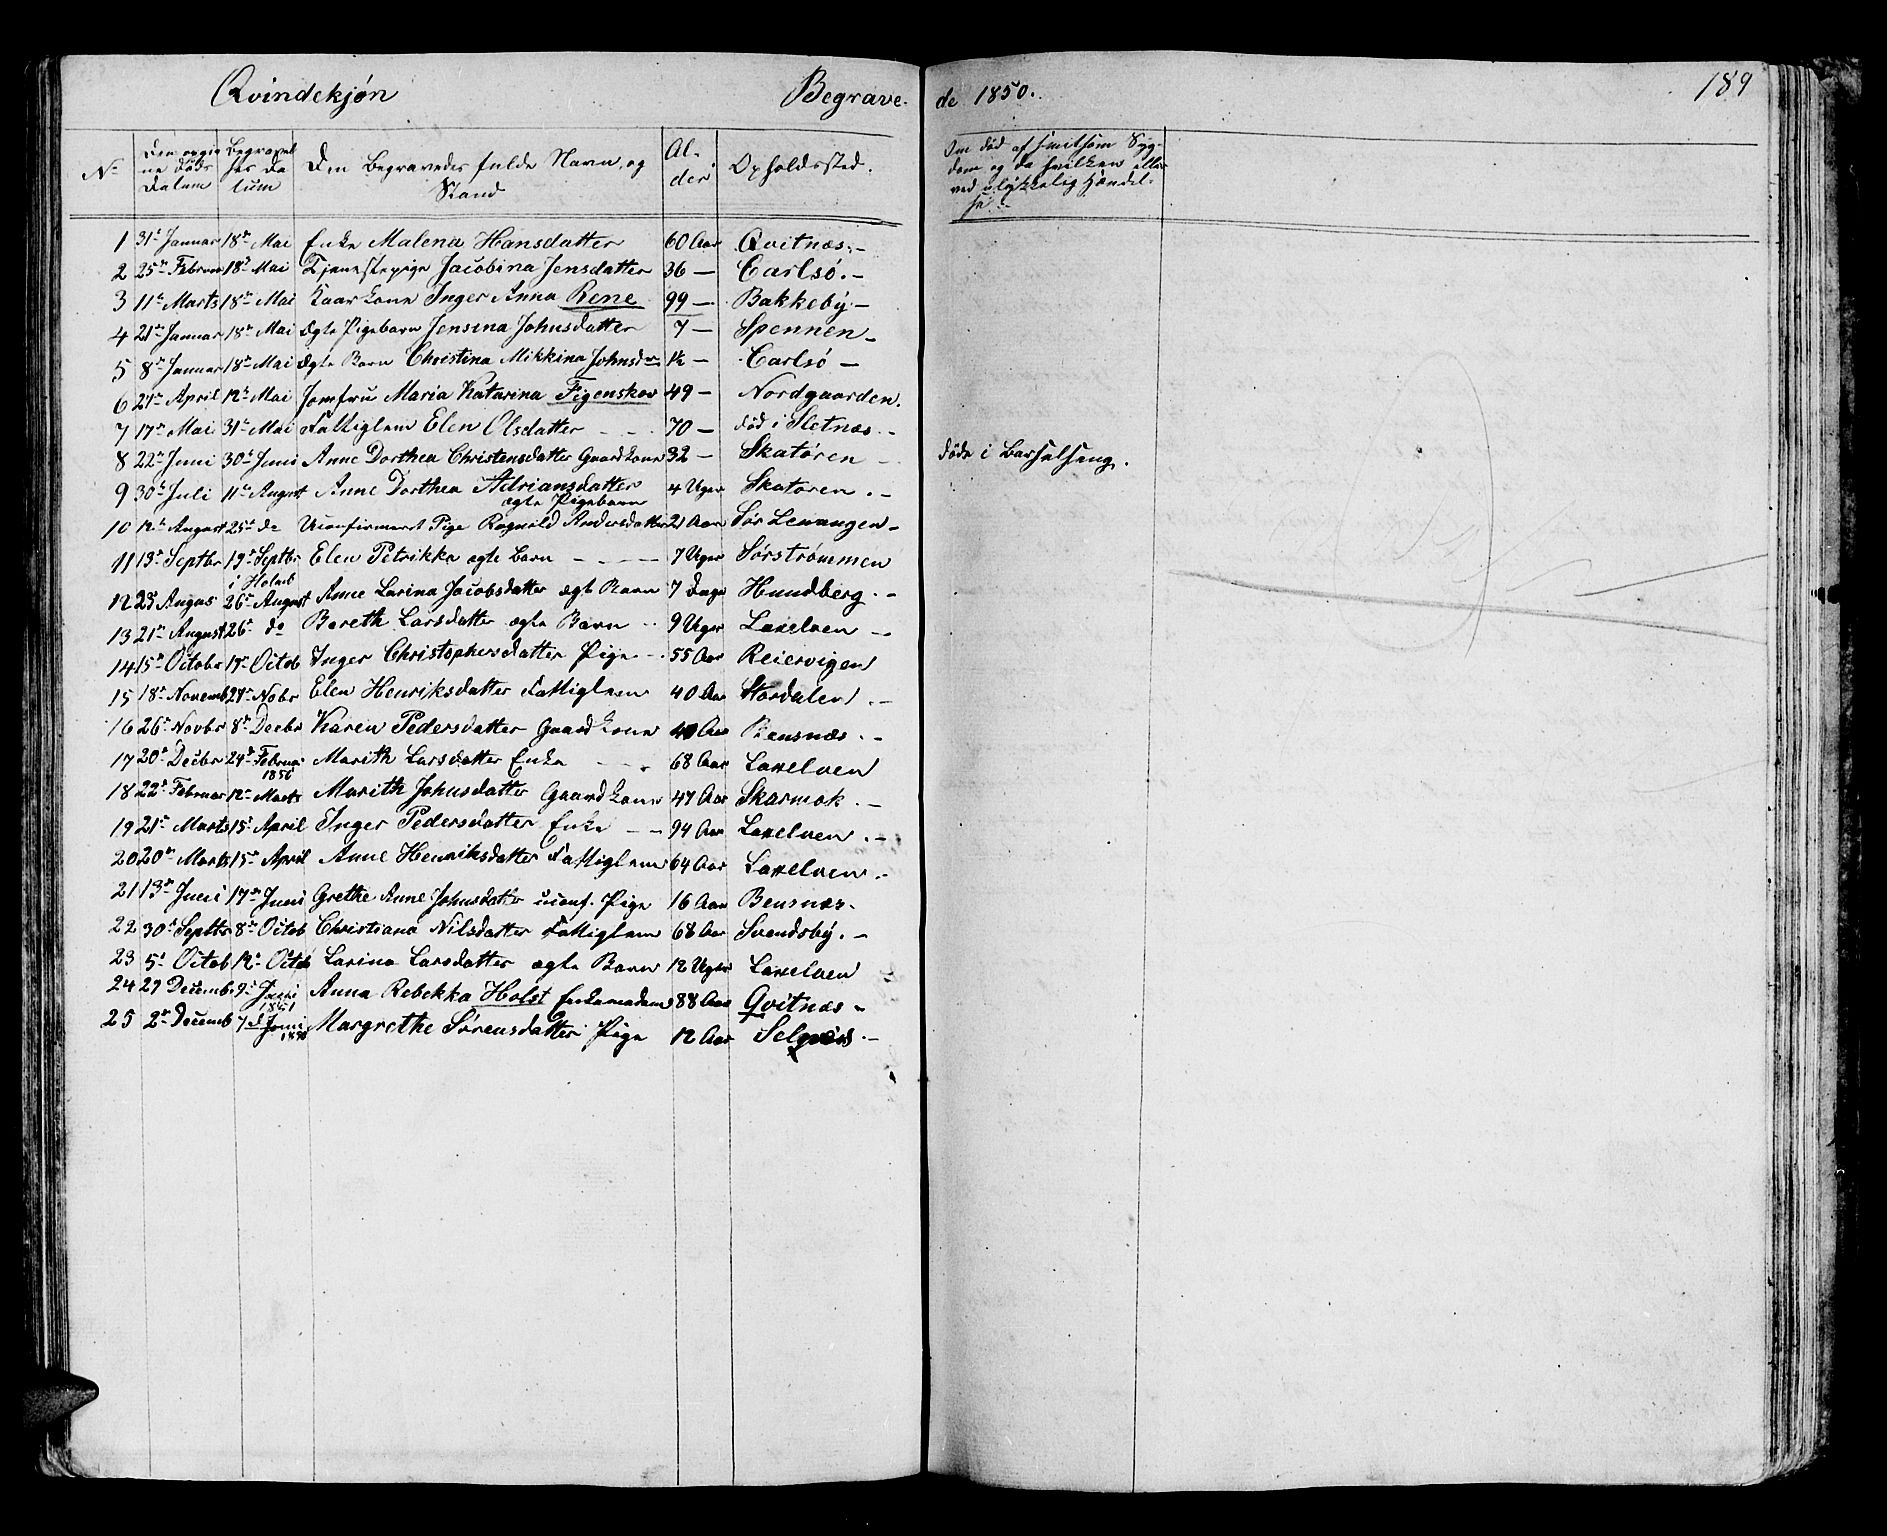 Qvindekjøn Begrave- de 1850. 189
No Den opgivne Døds Datum Begravelses Datum Den Begravedes fulde Navn, og Stand Alder Opholdssted. Om død af smitsom Sygdom og da hvilken eller ved ulykkelig Hændelse.
1 31te Januar 18de Mai Enke Malena Hansdatter 60 Aar Qvitnæs.-
2 25de Februar 18de Mai Tjenestepige Jacobina Jensdatter 36 — Carlsö.-
3 11te Marts 18de Mai Kaarkone Inger Anna Rene 99 — Bakkeby.-
4 21de Januar 18de Mai ægte Pigebarn Jensina Johnsdatter 7 — Spennen -
5 8de Januar 18de Mai ægte Barn Christina Mikkina Johnsdr 1½ — Carlsö —
6 21de April 12te Mai Jomfru Maria Katarina Figenskov 49 — Nordgaarden.
7 17de Mai 31te Mai Fattiglem Elen Olsdatter - - . 70 — død i Sletnæs.-
8 22de Juni 30te Juni Anne Dorthea Christensdatter Gaardkone 32 — Skatøren - døde i Barselseng.
9 30te Juli 11te August Anne Dorthea Adriansdatter ægte Pigebarn 4 Uger Skatøren.-
10 12te August 25de do Uconfirmeret Pige Ragnild Andersdatter 21 Aar Sør Lenangen -
11 13de Septbr 19de Septbr i Holmb Elen Petrikka ægte Barn - - - - 7 Uger Sørstrømmen
12 23 Augus 26de August Anne Larina Jacobsdatter ægt Barn 7 Dage Hundberg.-
13 21de August 26de do Bereth Larsdatter ægte Barn - 9 Uger Laxelven -
14 15de Octobr 19de Octob Inger Christophersdatter Pige -. 55 Aar Reiervigen
15 18de Novemb 27de Nobr Elen Henriksdatter Fattiglem 40 Aar Stordalen.-
16 26de Novbr 8de Decbr Karen Pedersdatter Gaardkone 40 Aar Bensnæs.-
17 20de Decbr 24de Februar 1851 Marith Larsdatter Enke - - . 68 Aar Laxelven
18 22de Februar 12te Marts Marith Johnsdatter Gaardkone 47 Aar Skarmok.-
19 21de Marts 15de April Inger Pedersdatter Enke - - 94 Aar Laxelven.-
20 20de Marts 15de April Anne Henriksdatter Fattiglem 64 Aar Laxelven.-
21 13de Juni 17de Juni Grethe Anne Johnsdatter uconf. Pige 16 Aar Bensnæs.
22 30te Septbr 8de Octob Christiana Nilsdatter Fattiglem 68 Aar Svendsby.-
23 5te Octob 12te Octb Larina Larsdatter ægte Barn 12 Uger Laxelven
24 27 Decemb 9de Juni 1851 Anna Rebekka Holst Enkemadame 88 Aar Qvitnæs -
25 2de Decemb 7de Juni Margrethe Sørensdatter Pige 12 Aar Selgnæs.-